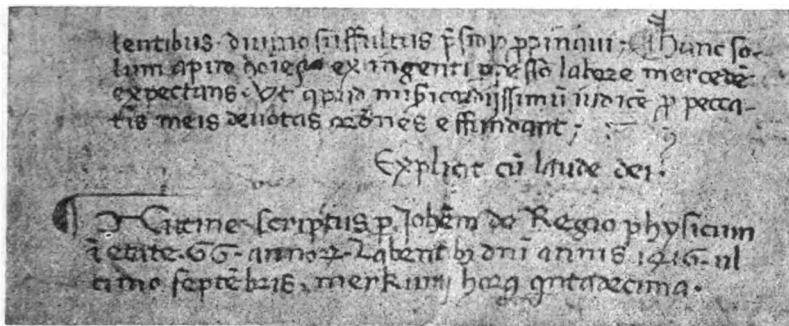 lentibus. divino suffultus p̄sidio ꝓpinavi: Hunc so-
lum a pito hoīe ex ingenti p̄esso labore mercedē
expectans. Vt apud misicordijssimū iudicē ꝓ pecca-
tis meis devotas orōnes effundant;
Explicit cū laude dei.
scriptus p Johēm de Regio physicum
ī etate. 66. annoꝝ. Labentibꝫ dnī annis 1416. ul
timo septēbris, merkurij hora qntadecima.